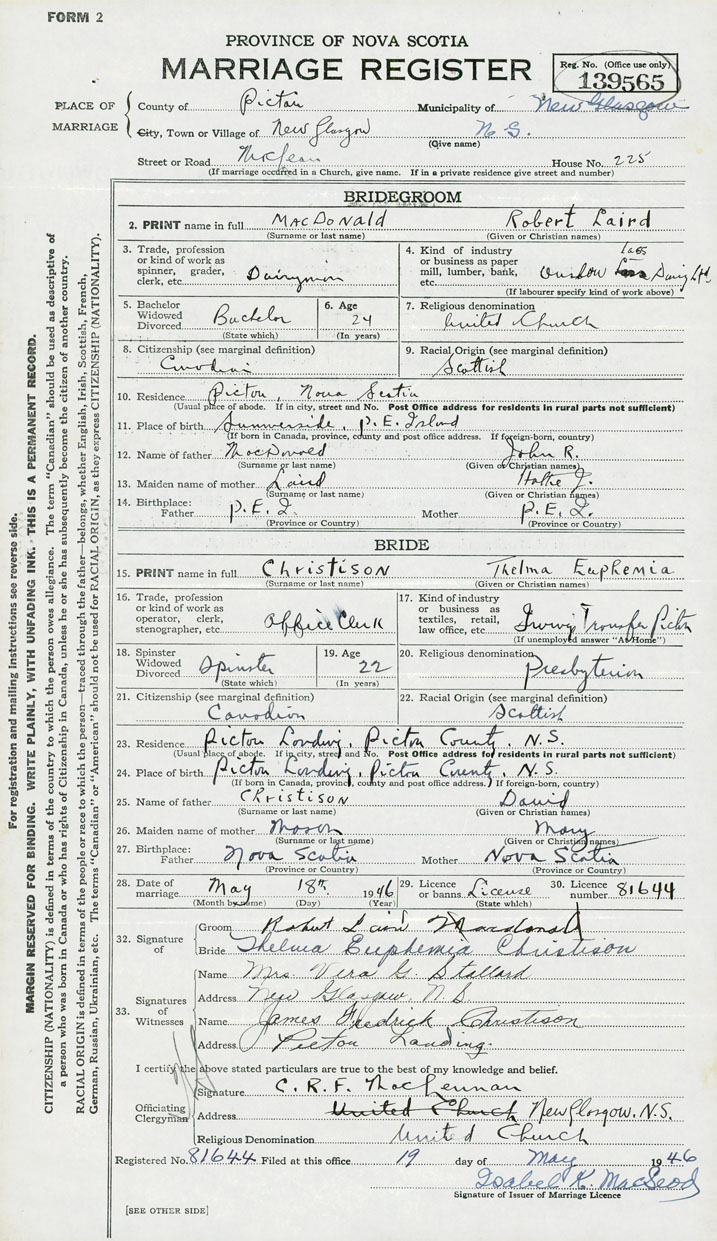 FORM 2
PROVINCE OF NOVA SCOTIA
MARRIAGE REGISTER
Reg. No. (Office use only)
139565
PLACE OF MARRIAGE
County of Pictou Municipality of New Glasgow
City, Town or Village of New Glasgow N.S.
(Give name)
Street or Road McLean House No. 225
(If marriage occurred in a Church, give name. If in a private residence give street and number)
BRIDEGROOM
2. PRINT name in full MacDonald Robert Laird
(Surname or last name) (Given or Christian names)
3. Trade, profession or kind of work as spinner, grader, clerk, etc. Dairyman
4. Kind of industry or business as paper mill, lumber, bank, etc. Dairy Ltd.
(If labourer specify kind of work above)
5. Bachelor Widowed Divorced Bachelor
(State which)
6. Age 24
(In years)
7. Religious denomination United Church
8. Citizenship (see marginal definition)
Canadian
9. Racial Origin (see marginal definition)
Scottish
10. Residence Pictou, Nova Scotia
(Usual place of abode. If in city, street and No. Post Office address for residents in rural parts not sufficient)
11. Place of birth Summerside, P.E. Island
(If born in Canada, province, county and post office address. If foreign-born, country)
12. Name of father MacDonald John R.
(Surname or last name) (Given or Christian names)
13. Maiden name of mother Laird J.
(Surname or last name) (Given or Christian names)
14. Birthplace: Father P.E.I. Mother P.E.I.
(Province or Country) (Province or Country)
BRIDE
15. PRINT name in full Christison Thelma Euphemia
(Surname or last name) (Given or Christian names)
16. Trade, profession or kind of work as operator, clerk, stenographer, etc. Office Clerk
17. Kind of industry or business as textiles, retail, law office, etc. Irving Transfer Pictou
(If unemployed answer "At Home")
18. Spinster Widowed Divorced Spinster
(State which)
19. Age 22
(In years)
20. Religious denomination Presbyterian
21. Citizenship (see marginal definition)
Canadian
22. Racial Origin (see marginal definition)
Scottish
23. Residence Pictou Landing, Pictou County, N.S.
(Usual place of abode. If in city, street and No. Post Office address for residents in rural parts not sufficient)
24. Place of birth Pictou Landing, Pictou County, N.S.
(If born in Canada, province, county and post office address. If foreign-born, country)
25. Name of father Christison David
(Surname or last name) (Given or Christian names)
26. Maiden name of mother Mason Mary
(Surname or last name) (Given or Christian names)
27. Birthplace: Father Nova Scotia Mother Nova Scotia
(Province or Country) (Province or Country)
28. Date of marriage May 18th 1946
(Month by name) (Day) (Year)
29. Licence or banns License
(State which)
30. Licence number 81644
32. Signature of
Groom Robert Laird Macdonald
Bride Thelma Euphemia Christison
33. Signatures of Witnesses
Name Mrs. Vera G. Stallard
Address New Glasgow, N.S.
Name James Fredrick Christison
Address Pictou Landing.
I certify the above stated particulars are true to the best of my knowledge and belief.
Officiating Clergyman
Signature C. R. F. MacLennan
Address United Church New Glasgow, N.S.
Religious Denomination United Church
Registered No. 81644 Filed at this office 19 day of May 1946
Isabel K. MacLeod
Signature of Issuer of Marriage Licence
[SEE OTHER SIDE]
For registration and mailing instructions see reverse side.
MARGIN RESERVED FOR BINDING. WRITE PLAINLY, WITH UNFADING INK. THIS IS A PERMANENT RECORD.
CITIZENSHIP (NATIONALITY) is defined in terms of the country to which the person owes allegiance. The term "Canadian" should be used as descriptive of
a person who was born in Canada or who has rights of Citizenship in Canada, unless he or she has subsequently become the citizen of another country.
RACIAL ORIGIN is defined in terms of the people or race to which the person—traced through the father—belongs, whether English, Irish, Scottish, French,
German, Russian, Ukrainian, etc. The terms "Canadian" or "American" should not be used for RACIAL ORIGIN, as they express CITIZENSHIP (NATIONALITY).